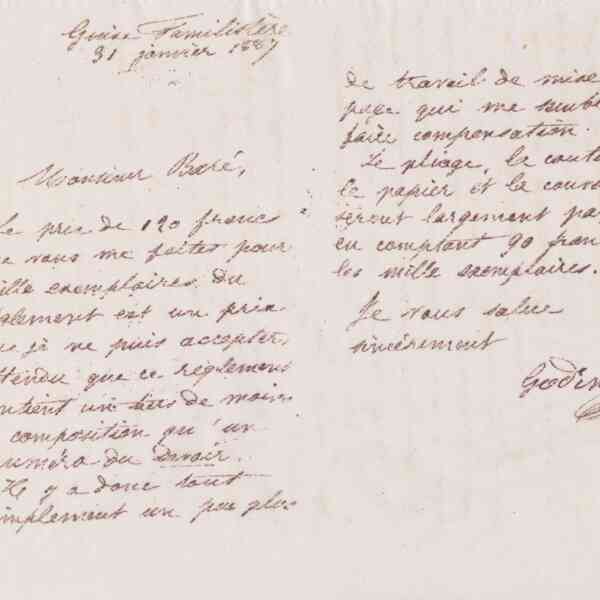 Guise Familistère
31 janvier 1887
Monsieur Baré,
Le prix de 120 francs
que vous me faites pour
mille exemplaires du
règlement est un prix
que je ne puis accepter,
attendu que ce règlement
contient un tiers de moins
composition qu'un
numéro du Devoir.
Il y a donc tout
simplement un peu plus
de travail de mise
page qui me semble
faire compensation.
Le pliage, la couture
le papier et la couver
seront largement pay
en comptant 90 fran
les mille exemplaires.
Je vous salue
sincèrement
Godin